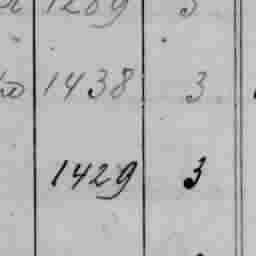 1209 3
1438 3
1429 3